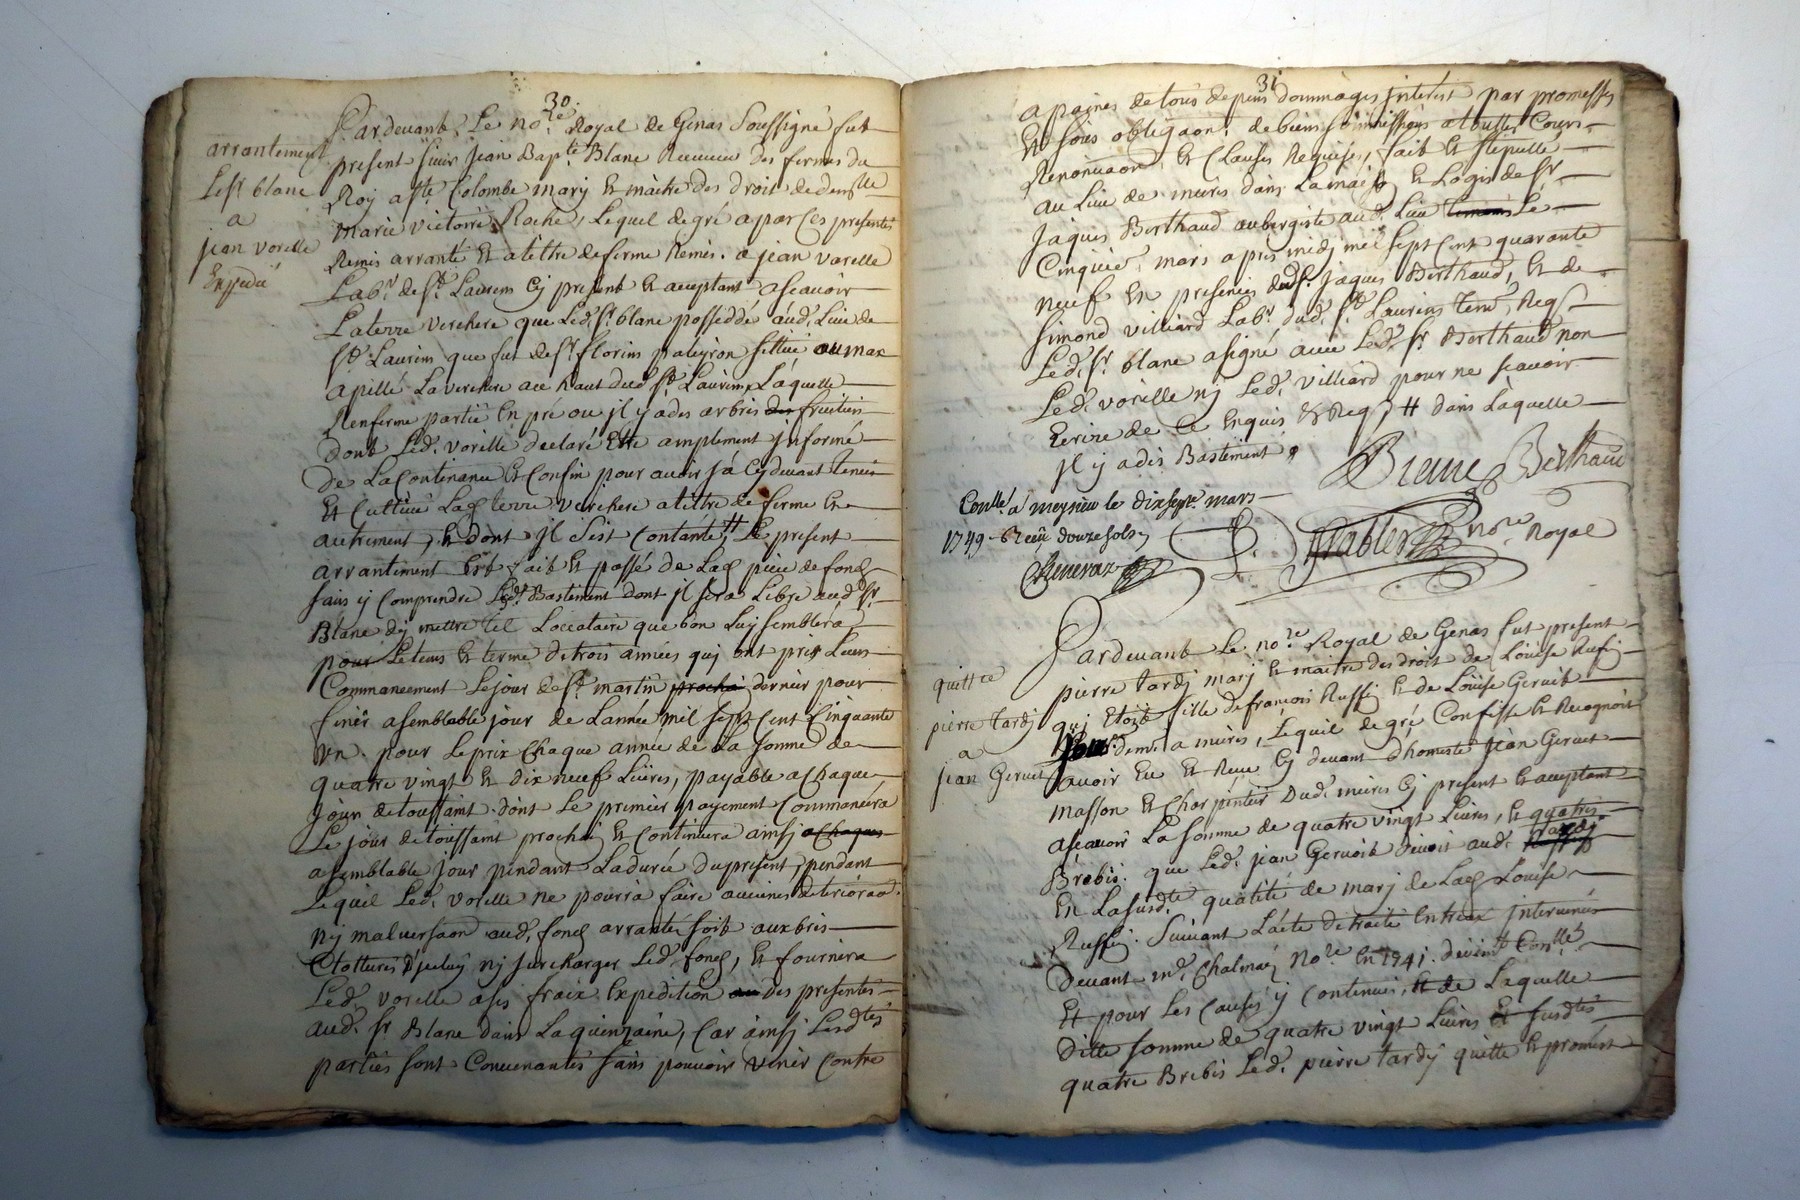 30.
arrantement
Le sr. blanc
a
jean vorelle
Expedié
Pardevant Le nore. Royal de Genas Soussigné fut
present sieur Jean Bapte. Blanc Receveur des fermes du
Roy a ste. Colombe mary et maitre des droit de demslle
marie victoire Roche, Lequel de gré a par Ces presentes
Remis arranté et a tittre de ferme Remis. a jean varelle
Labr. de st. Laurens Cy present et acceptant ascavoir
La terre verchere que Led. sr. blanc posséde aud. Lieu de
st. Laurens que fut de sr. florins paleyron sittué au mas
apillé La verchere au haut dud. st. Laurens, Laquelle
Renferme partie En pré ou jl y a des arbres des fruitiers
dont Led. vorelle declaré Etre amplement jnformé
de La Contenance et Confin pour avoir ja Cy devant tenue
Et Cultivé Lad. terre verchere a tittre de ferme Et
autrement, et dont jl s'est Contanté, # Le present
arrantement fait et passé de Lad. piece de fond
sans y Comprendre Led. Bastiment dont jl sera Libre aud. sr.
Blanc d'y mettre tel Locataire que bon Luy semblera
pour Le tems et terme de trois années quj ont pris Leurs
Commancement Le jour de st. martin prochai dernier pour
finir a semblable jour de Lannée mil sept Cent Cinquante
un. pour Le prix Chaque année de La somme de
quatre vingt et dix neuf Livres, payable a Chaque
jour de toussaint dont Le premier payement Commancera
Le jour de toussaint prochai et Continuera ainsj a Chaque
a semblable jour pendant La durée du present, pendant
Lequel Led. vorelle ne pourra faire aucunes deterioraon.
nj malversaon aud. fond arranté soit aux bris
Clottures d'jceluy nj surcharger Led. fond, et fournira
Led. vorelle a ses fraix Expedition au des presentes
aud. sr. Blanc dans La quinzaine, Car ainsj Lesdtes
parties sont Convenantes sans pouvoir venir Contre
31
a paines de tous depens dommages jnterest par promesses
Et sous obligaon. de biens soumissions a touttes Cours
Renonciaon. et Clauses Requises, fait et stipullé
au Lieu de mures dans La maison et Logis de sr.
Jaques Berthaud aubergiste aud. Lieu temoins Le
Cinquie. mars apres midj mil sept Cent quarante
neuf En presences dud. sr. Jaques Berthaud, et de
simond villiard Labr. dud. st. Laurens tem. Req.
Led. sr. blanc a signé avec Led. sr. Berthaud non
Led. vorelle nj Led. villiard pour ne scavoir
Ecrire de Ce Enquis et Req. # dans Laquelle
jl y a des Bastiment
Blanc Berthaud
Conllé. a meysieu le dix sept. mars
1749 Recû douze sols
nore. Royal
quittce
pierre tardj
a
jean Gervet
Pardevant Le nore. Royal de Genas fut present
pierre tardj marj et maitre des droit de Louise Ruffi
quj Etoit fille de françois Ruffi et de Louise Gervet
demt. a mures, Lequel de gré Confesse et Recognoit
avoir Eu et Reçu Cj devant d'honneste Jean Gervet
masson et Charpentier dud. mures Cj present et acceptant
ascavoir La somme de quatre vingt Livres, et quatres
Brebis. que Led. jean Gervet devoit aud. tardj
En La susdte. qualité de marj de Lad. Louise
Ruffi. suivant L'acte de traité Entreux jntervenu
devant me. Chalmas nore. En 1741. devemt. Conllé.
Et pour Les Causes y Contenues, # de Laquelle
ditte somme de quatre vingt Livres et susdtes
quatre Brebis Led. pierre tardj quitte et promest